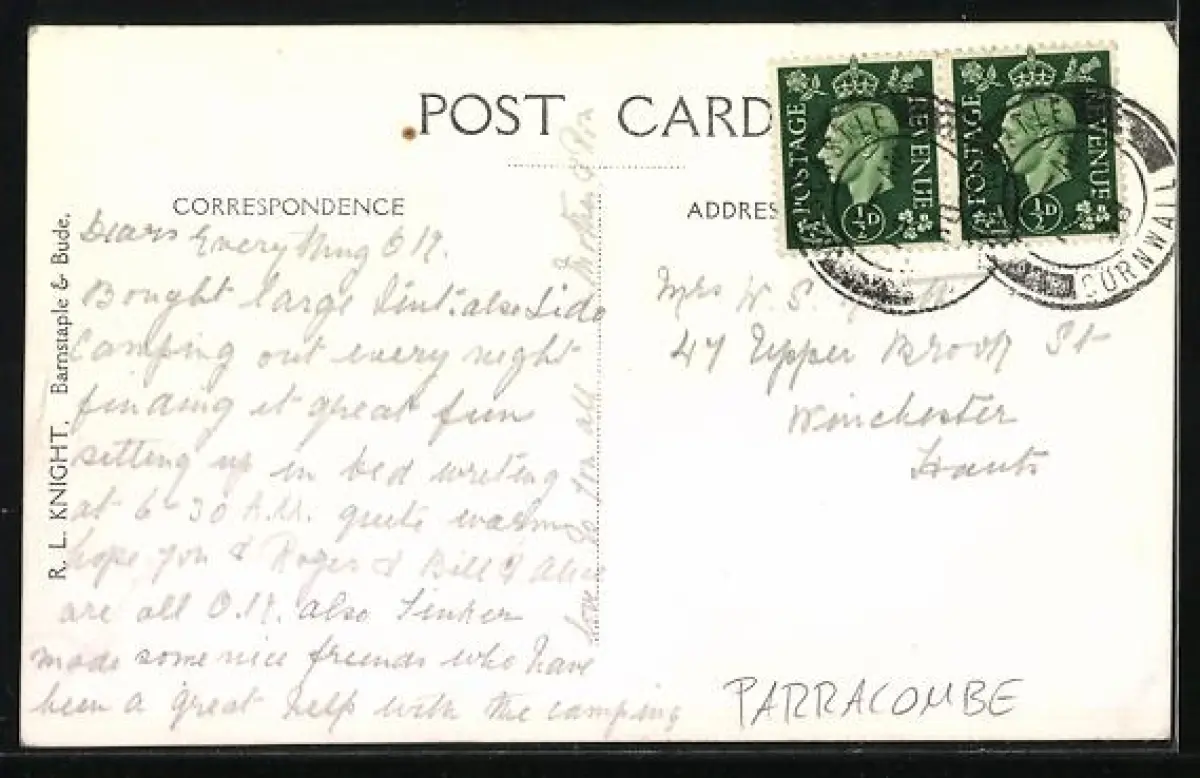 POST CARD
CORRESPONDENCE
ADDRES
R. L. KNIGHT, Barnstaple & Bude.
POSTAGE REVENUE
½D
POSTAGE REVENUE
½D
CORNWALL
Dears Everything O K.
Bought large Tent. also Lido
Camping out every night
finding it great fun
setting up in bed writing
at 6-30 A.M. quite warm
hope you & Roger & Bill & Alice
are all O.K. also Tinker
made some nice friends who have
been a great help with the camping
love to you all Mother &
Mrs W. S.
47 Upper Brook St
Winchester
Hants
PARRACOMBE